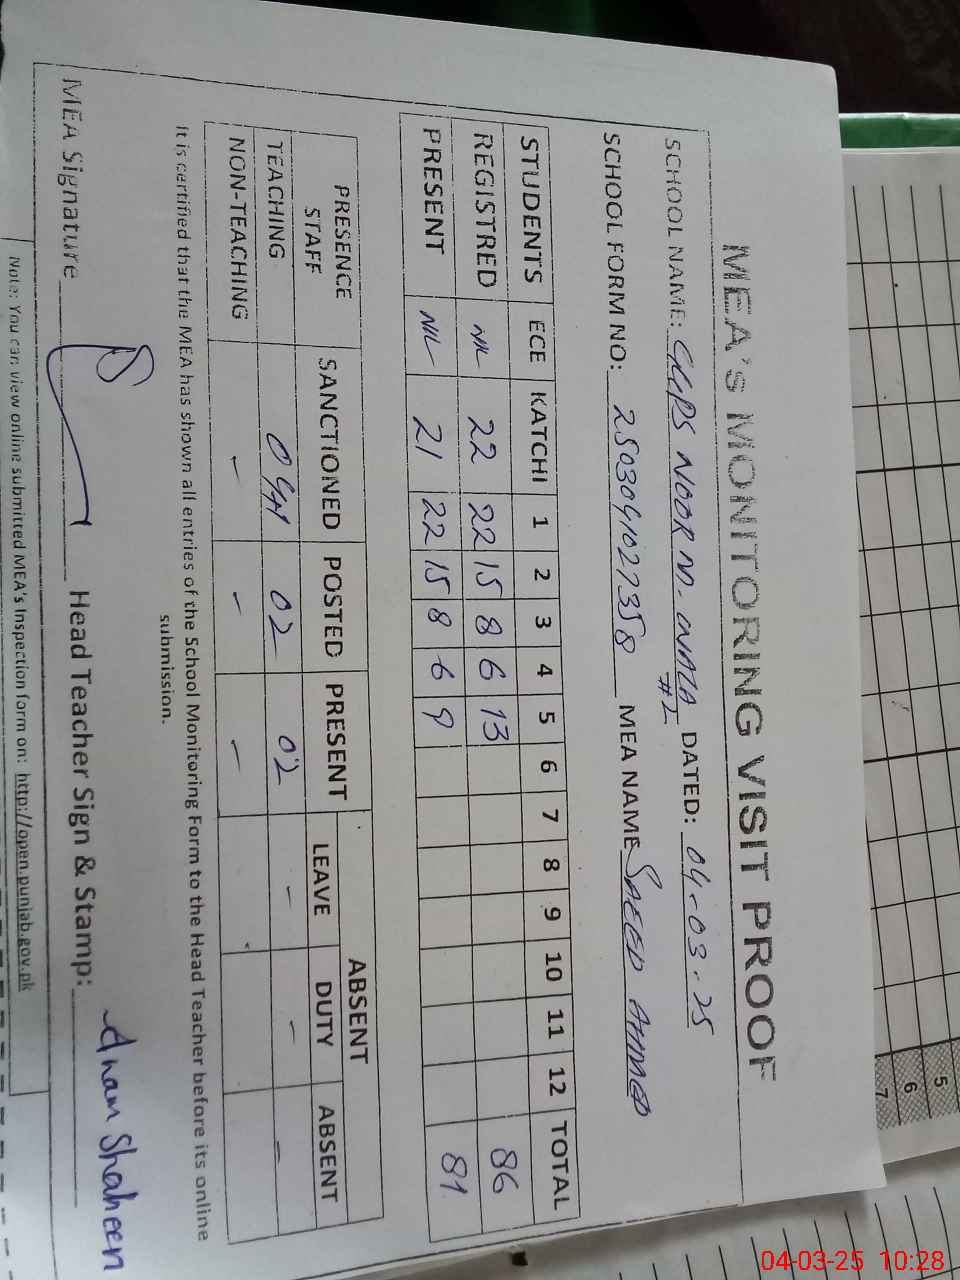 MEA's MONITORING VISIT PROOF
SCHOOL NAME: GGPS NOOR M. #2 DATED: 04-03-25
SCHOOL FORM NO: 2503041027358 MEA NAME SAEED AHMED
STUDENTS ECE KATCHI 1 2 3 4 5 6 7 8 9 10 11 12 TOTAL
REGISTRED NIL 22 22 15 8 6 13 86
PRESENT NIL 21 22 15 8 6 9 81
PRESENCE STAFF SANCTIONED POSTED PRESENT ABSENT
LEAVE DUTY ABSENT
TEACHING 02 02 - - -
NON-TEACHING - - - -
It is certified that the MEA has shown all entries of the School Monitoring Form to the Head Teacher before its online
submission.
MEA Signature Head Teacher Sign & Stamp: Anam Shaheen
Note: You can view online submitted MEA's Inspection form on: http://open.punjab.gov.pk
5
6
7
04-03-25 10:28